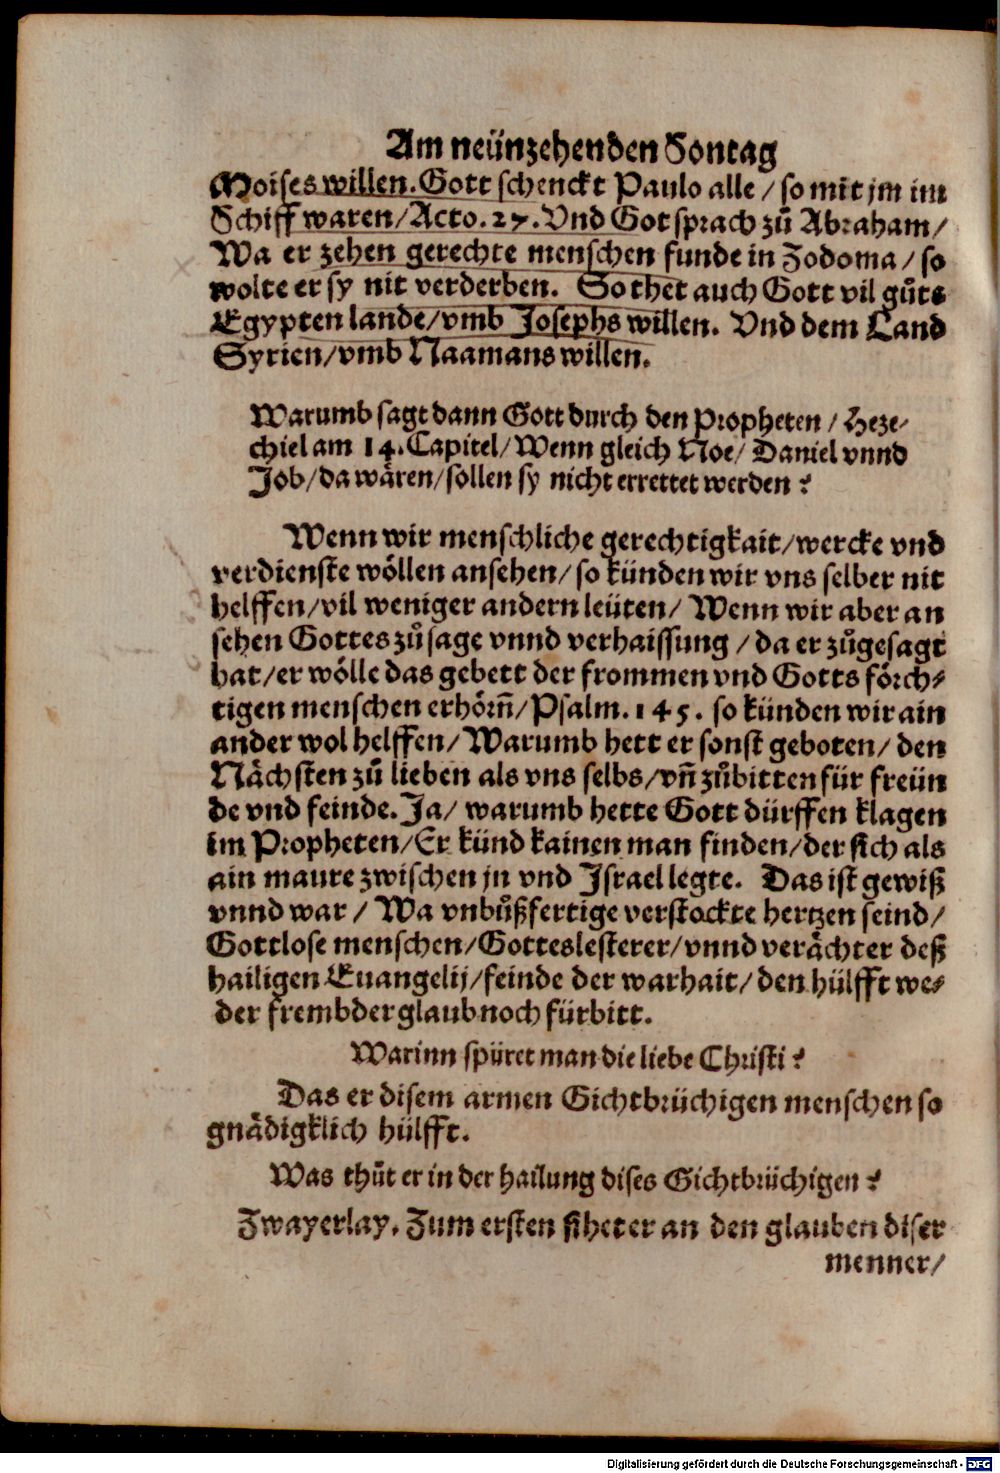 Am neünzehenden Sontag
Moises willen. Gott schenckt Paulo alle / so mit jm im
Schiff waren/Acto. 27. Vnd Got sprach zů Abraham/
Wa er zehen gerechte menschen funde in Zodoma / so
wolte er sy nit verderben. So thet auch Gott vil gůts
Egypten lande/vmb Josephs willen. Vnd dem Land
Syrien/vmb Naamans willen.
Warumb sagt dann Gott durch den Propheten / Heze-
chiel am 14. Capitel/ Wenn gleich Noe/ Daniel vnnd
Job/da wären/sollen sy nicht errettet werden ?
Wenn wir menschliche gerechtigkait/wercke vnd
verdienste wöllen ansehen/ so künden wir vns selber nit
helffen/vil weniger andern leüten/ Wenn wir aber an
sehen Gottes zůsage vnnd verhaissung / da er zůgesagt
hat/er wölle das gebett der frommen vnd Gotts förch-
tigen menschen erhörn̄/Psalm. 145. so künden wir ain
ander wol helffen/ Warumb hett er sonst geboten/ den
Nächsten zů lieben als vns selbs/vn̄ zůbitten für freün
de vnd feinde. Ja/ warumb hette Gott dürffen klagen
im Propheten/Er künd kainen man finden/der sich als
ain maure zwischen jn vnd Israel legte. Das ist gewiß
vnnd war / Wa vnbůßfertige verstockte hertzen seind/
Gottlose menschen/Gotteslesterer/vnnd verächter deß
hailigen Euangelij/feinde der warhait/ den hülfft we-
der frembder glaub noch fürbitt.
Warinn spüret man die liebe Christi ?
Das er disem armen Gichtbrüchigen menschen so
gnädigklich hülfft.
Was thůt er in der hailung dises Gichtbrüchigen ?
Zwayerlay. Zum ersten sihet er an den glauben diser
menner/
Digitalisierung gefördert durch die Deutsche Forschungsgemeinschaft - DFG